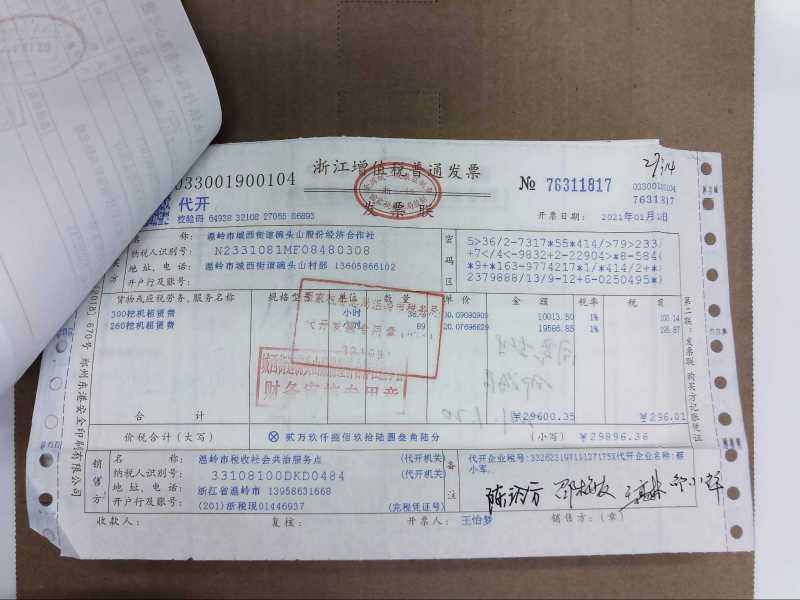 浙江增值税普通发票
033001900104
№ 76311817
033001900104
76311817
代开
发票联
校验码 64938 32108 27065 86893
开票日期： 2021年01月1日
名称： 温岭市城西街道碗头山股份经济合作社
纳税人识别号： N2331081MF08480308
地址、电话： 温岭市城西街道碗头山村部 13605866102
开户行及账号：
密码区
5>36/2-7317*55*414/>79>233/
+7</4<-9832+2-22904>*8-584(
*9+*163-9774217*1/*414/2+*)
2379888/13/9-12+6-0250495*)
货物或应税劳务、服务名称 规格型号 单位 数量 单价 金额 税率 税额
300挖机租赁费 小时 10013.50 1% 100.14
260挖机租赁费 89 20.07696629 19586.85 1% 195.87
合计 ￥29600.35 ￥296.01
价税合计（大写） ⊗ 贰万玖仟捌佰玖拾陆圆叁角陆分 （小写） ￥29896.36
销售方
名称： 温岭市税收社会共治服务点 （代开机关）
纳税人识别号： 33108100DKD0484 （代开机关）
地址、电话： 浙江省温岭市 13958631668
开户行及账号： (201) 浙税现01446937 （完税凭证号）
备注
代开企业税号:33262319711127175X代开企业名称:蔡
小军
收款人： 复核： 开票人： 王怡梦 销售方：（章）
第二联：发票联 购买方记账凭证
郑州东港安全印刷有限公司